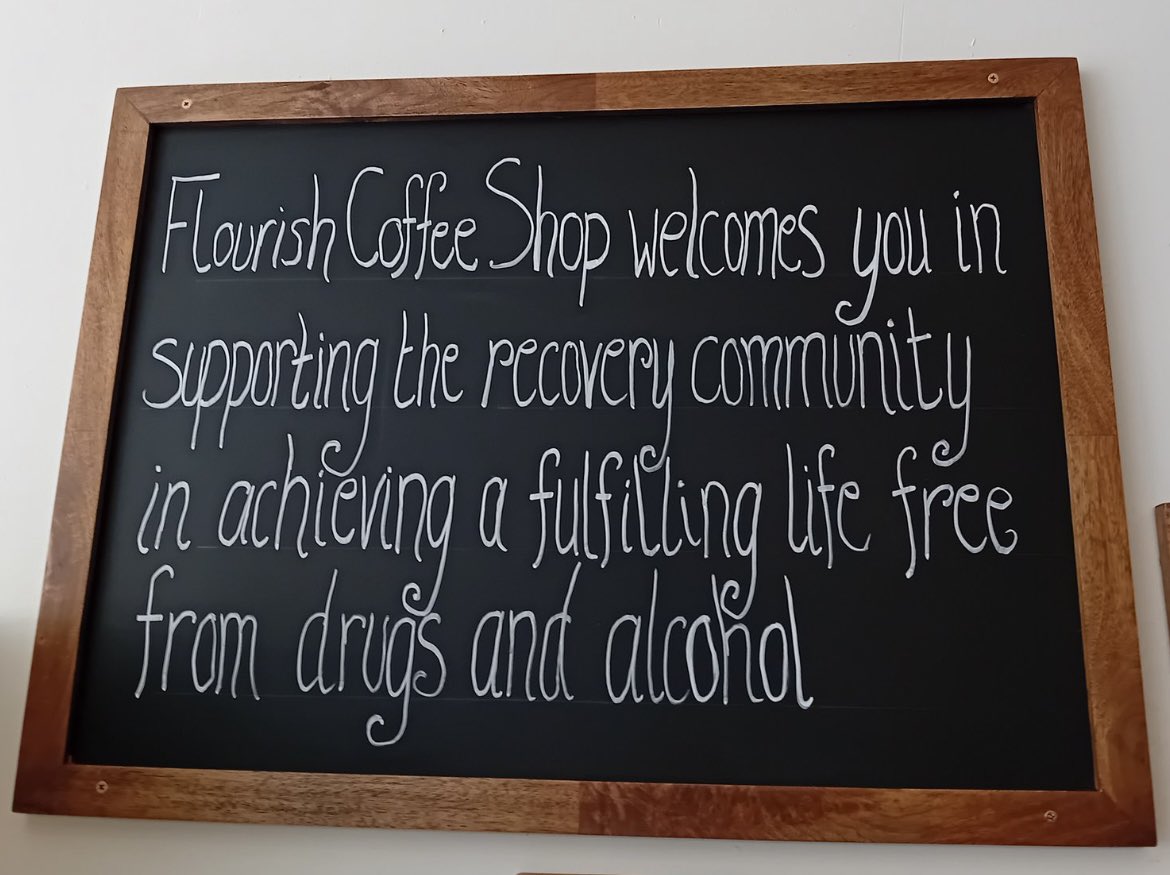 Flourish Coffee Shop welcomes you in
supporting the recovery community
in achieving a fulfilling life free
from drugs and alcohol